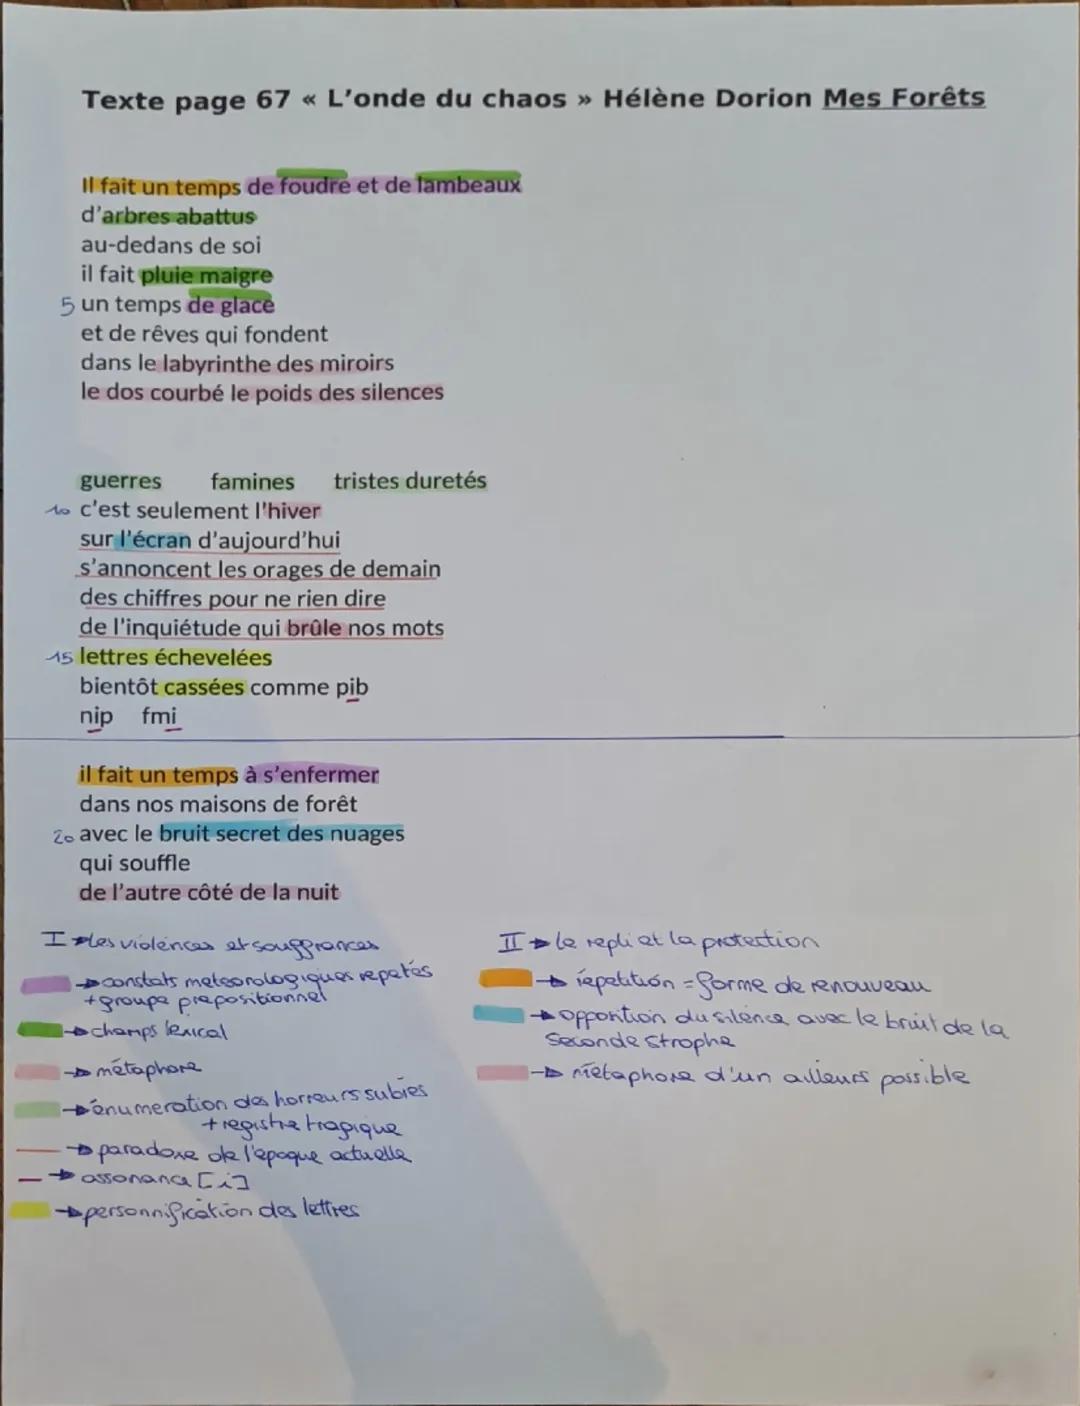 Texte page 67 « L'onde du chaos » Hélène Dorion Mes Forêts
Il fait un temps de foudre et de lambeaux
d'arbres abattus
au-dedans de soi
il fait pluie maigre
5 un temps de glace
et de rêves qui fondent
dans le labyrinthe des miroirs
le dos courbé le poids des silences
guerres famines tristes duretés
10 c'est seulement l'hiver
sur l'écran d'aujourd'hui
s'annoncent les orages de demain
des chiffres pour ne rien dire
de l'inquiétude qui brûle nos mots
15 lettres échevelées
bientôt cassées comme pib
nip fmi
il fait un temps à s'enfermer
dans nos maisons de forêt
20 avec le bruit secret des nuages
qui souffle
de l'autre côté de la nuit
I → les violences et souffrances
→ constats meteorologiques repetés
+ groupe prepositionnel
→ champs lexical
→ métaphore
→ énumeration des horreurs subies
+ registre tragique
→ paradoxe de l'époque actuelle
→ assonance [i]
→ personnification des lettres
II → le repli et la protection
→ répetition = forme de renouveau
→ opposition du silence avec le bruit de la
seconde strophe
→ métaphore d'un ailleurs possible